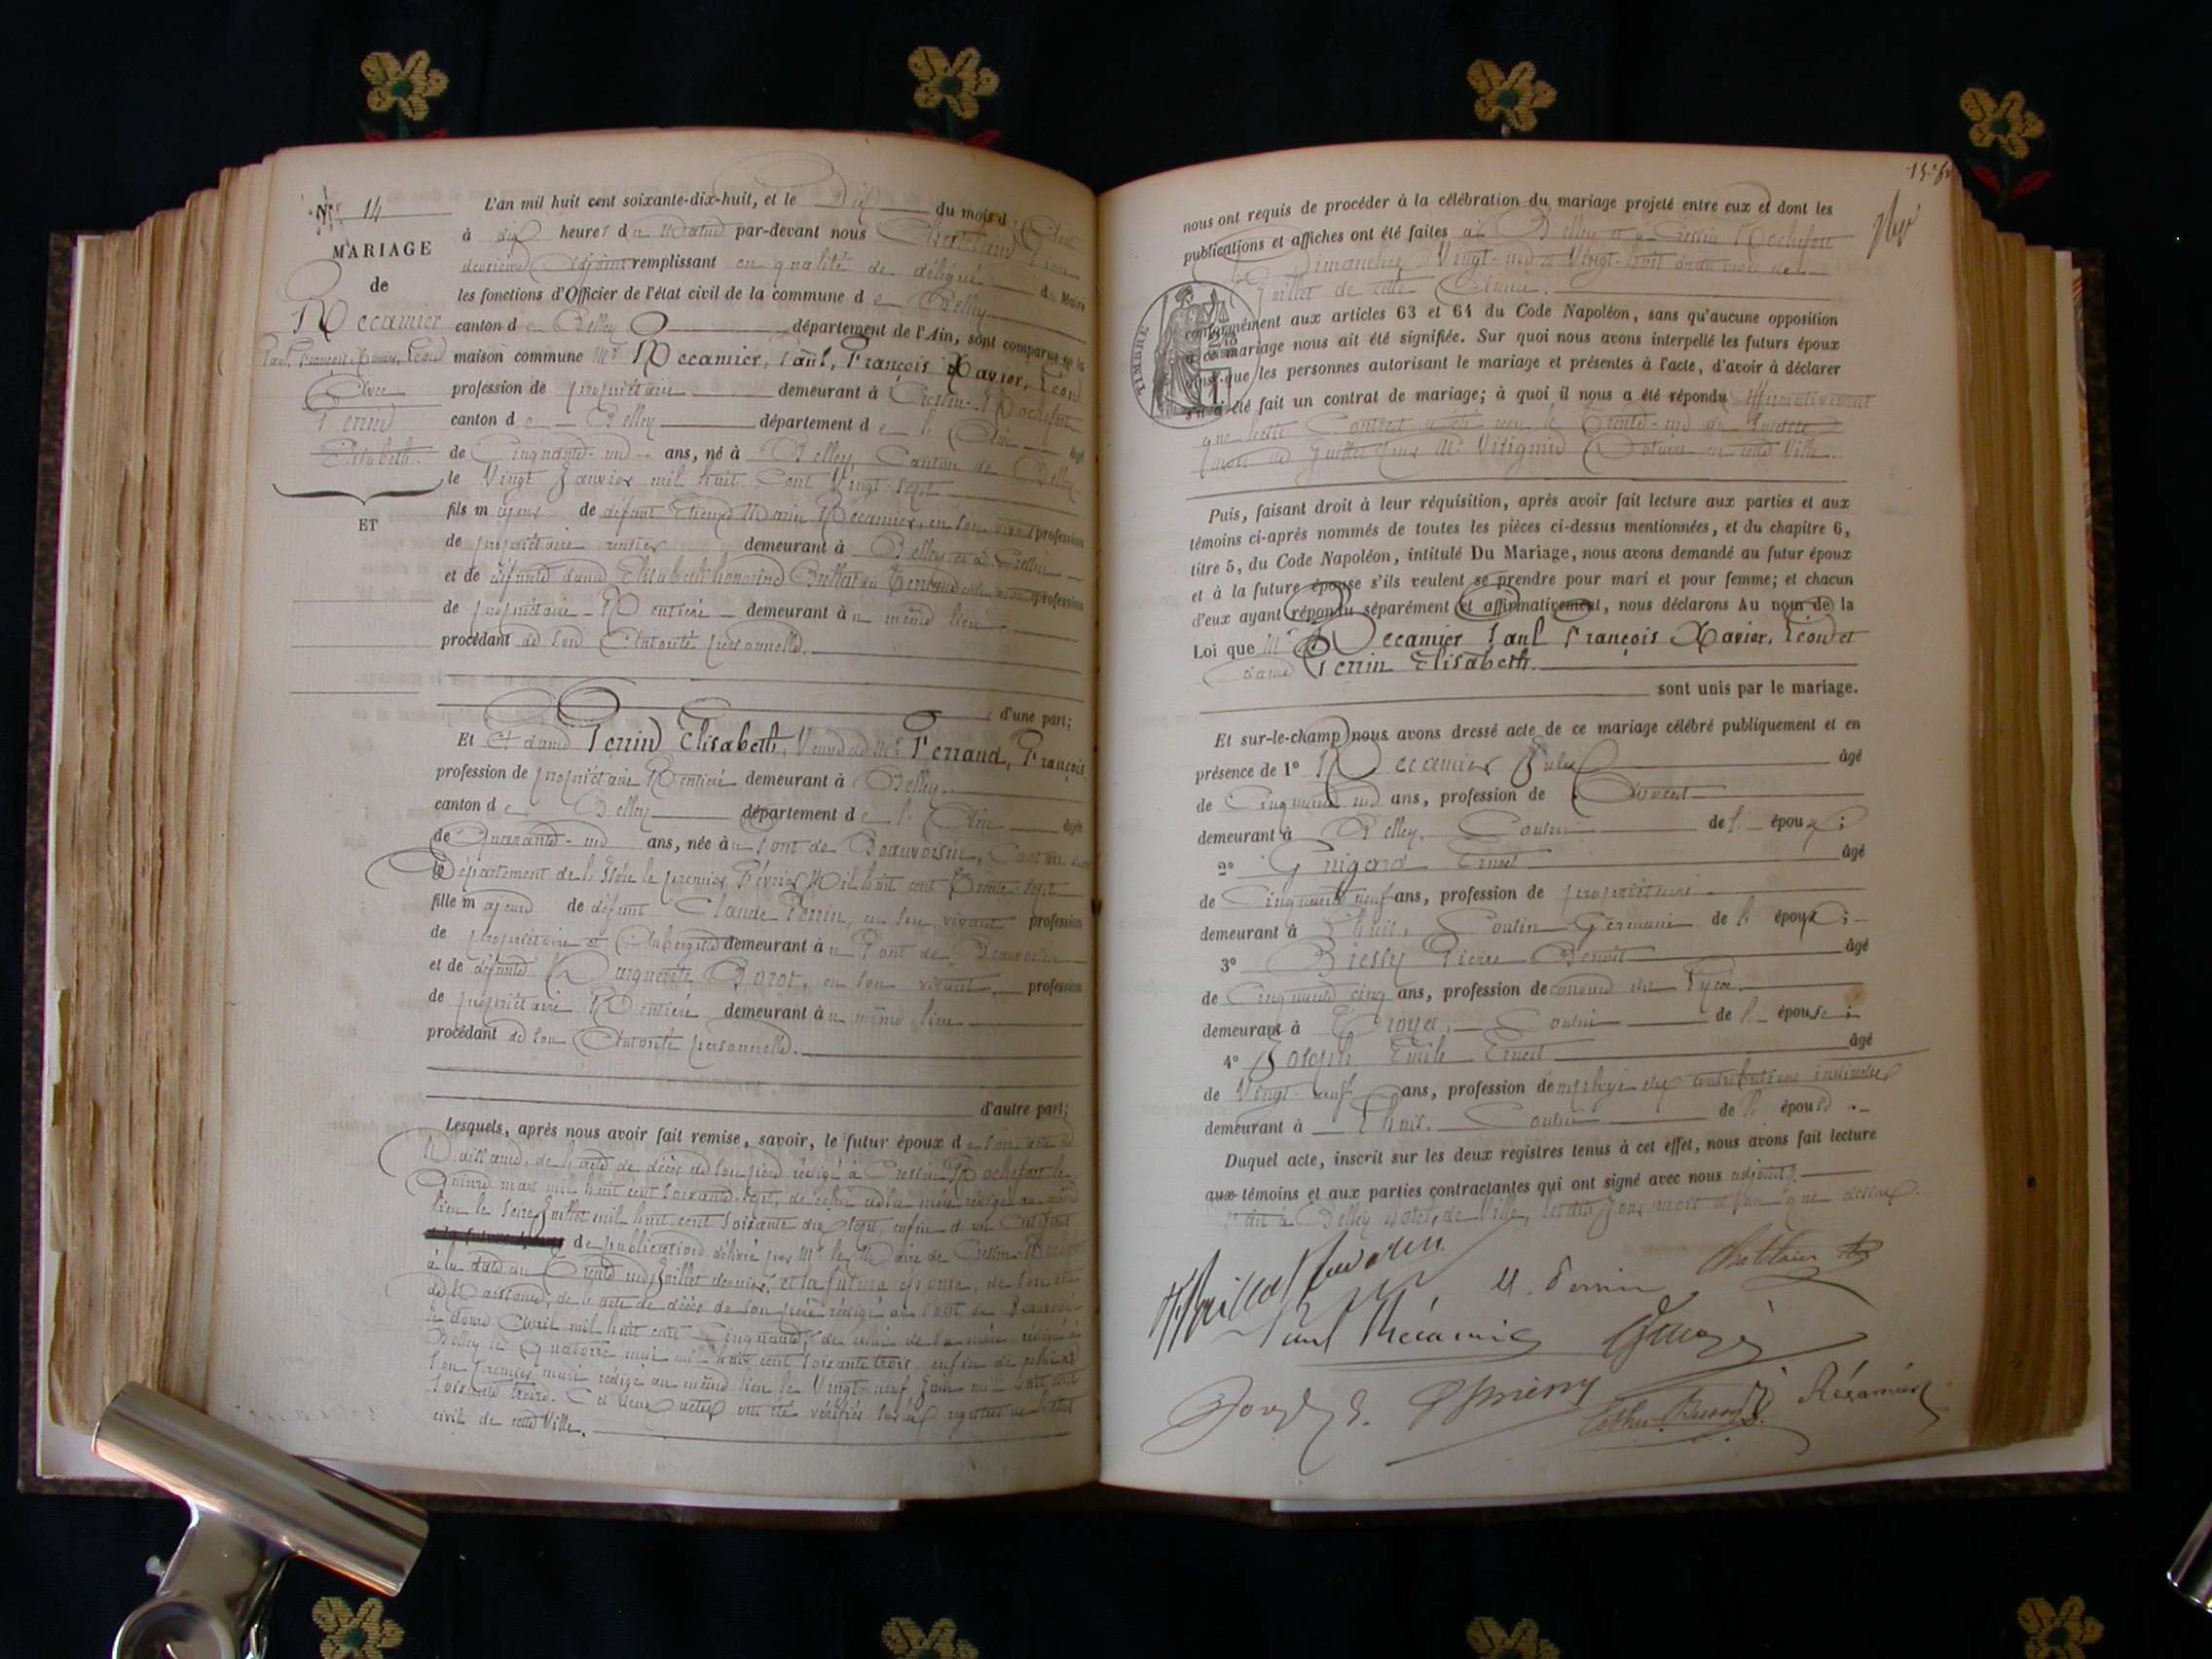 N° 14
MARIAGE
de
Récamier
Paul, François, Xavier, Léon
Avec
Perrin
Elisabeth
ET
L'an mil huit cent soixante-dix-huit, et le Dix du mois d'Août
à dix heures du Matin par-devant nous Chatelain
deuxième Adjoint remplissant en qualité de délégué du Maire
les fonctions d'Officier de l'état civil de la commune de Belley
canton de Belley département de l'Ain, sont comparus en la
maison commune Mr Récamier, Paul, François Xavier, Léon
profession de propriétaire demeurant à Cressin-Rochefort
canton de Belley département de l'Ain âgé
de Cinquante-un ans, né à Belley, Canton de Belley
le Vingt Janvier mil huit Cent Vingt-Sept
fils majeur de défunt Etienne Marin Récamier, en son vivant profession
de propriétaire rentier demeurant à Belley et à Cressin
et de défunte dame Elisabeth honorine profession
de propriétaire Rentière demeurant au même lieu
procédant de son Autorité personnelle.
d'une part;
Et dame Perrin Elisabeth, Veuve de Mr Ferrand, François
profession de propriétaire Rentière demeurant à Belley
canton de Belley département de l'Ain âgée
de Quarante-un ans, née au Pont de Beauvoisin, Canton
Département de l'Isère le premier Février Mil huit cent Trente-sept
fille majeure de défunt Claude Perrin, en son vivant profession
de propriétaire et Aubergiste demeurant au Pont de Beauvoisin
et de défunte Marguerite Borot, en son vivant profession
de propriétaire Rentière demeurant au même lieu
procédant de son Autorité personnelle.
d'autre part;
Lesquels, après nous avoir fait remise, savoir, le futur époux de son acte de
Naissance, de l'acte de décès de son père rédigé à Cressin Rochefort le
mars mil huit cent soixante-sept, de celui de sa mère rédigé au même
lieu le seize Juillet mil huit cent soixante dix sept, enfin d'un Certificat
de publication délivré par Mr le Maire de Cressin-Rochefort
à la date du Trente un Juillet dernier, et la future épouse, de son acte
de Naissance, de l'acte de décès de son père rédigé au Pont de Beauvoisin
le douze Avril mil huit cent Cinquante, de celui de sa mère rédigé à
Belley le Quatorze mai mil huit cent soixante trois, enfin de celui de
son premier mari rédigé au même lieu le Vingt-neuf Juin mil huit cent
soixante treize. Ces deux actes ont été vérifiés sur les registres de l'état
civil de cette Ville.
nous ont requis de procéder à la célébration du mariage projeté entre eux et dont les
publications et affiches ont été faites à Belley et à Cressin Rochefort
les Dimanches Vingt-un et Vingt-huit du mois de
Juillet de cette Année.
TIMBRE
conformément aux articles 63 et 64 du Code Napoléon, sans qu'aucune opposition
à ce mariage nous ait été signifiée. Sur quoi nous avons interpellé les futurs époux
ainsi que les personnes autorisant le mariage et présentes à l'acte, d'avoir à déclarer
s'il a été fait un contrat de mariage; à quoi il nous a été répondu affirmativement
que ledit Contrat a été reçu le Trente-un du
mois de Juillet par Mr Notaire en cette Ville.
Puis, faisant droit à leur réquisition, après avoir fait lecture aux parties et aux
témoins ci-après nommés de toutes les pièces ci-dessus mentionnées, et du chapitre 6,
titre 5, du Code Napoléon, intitulé Du Mariage, nous avons demandé au futur époux
et à la future épouse s'ils veulent se prendre pour mari et pour femme; et chacun
d'eux ayant répondu séparément et affirmativement, nous déclarons Au nom de la
Loi que Mr Récamier Paul François Xavier, Léon et
dame Perrin Elisabeth.
sont unis par le mariage.
Et sur-le-champ nous avons dressé acte de ce mariage célébré publiquement et en
présence de 1° Récamier Jules âgé
de Cinquante un ans, profession de
demeurant à Belley, Cousin de l'époux;
2° Guigard Ernest âgé
de Cinquante neuf ans, profession de propriétaire
demeurant à Cousin Germain de l'époux;
3° Biessy Pierre Benoit âgé
de Cinquante cinq ans, profession de Lycée
demeurant à Troyes, Cousin de l'épouse;
4° Joseph Emile Ernest âgé
de Vingt-neuf ans, profession d'employé des contributions indirectes
demeurant à Cousin de l'épouse
Duquel acte, inscrit sur les deux registres tenus à cet effet, nous avons fait lecture
aux témoins et aux parties contractantes qui ont signé avec nous adjoint.
Fait à Belley Hôtel de Ville, lesdits Jour mois et an que dessus.
E. Perrin
Chatelain
Paul Récamier
Récamier